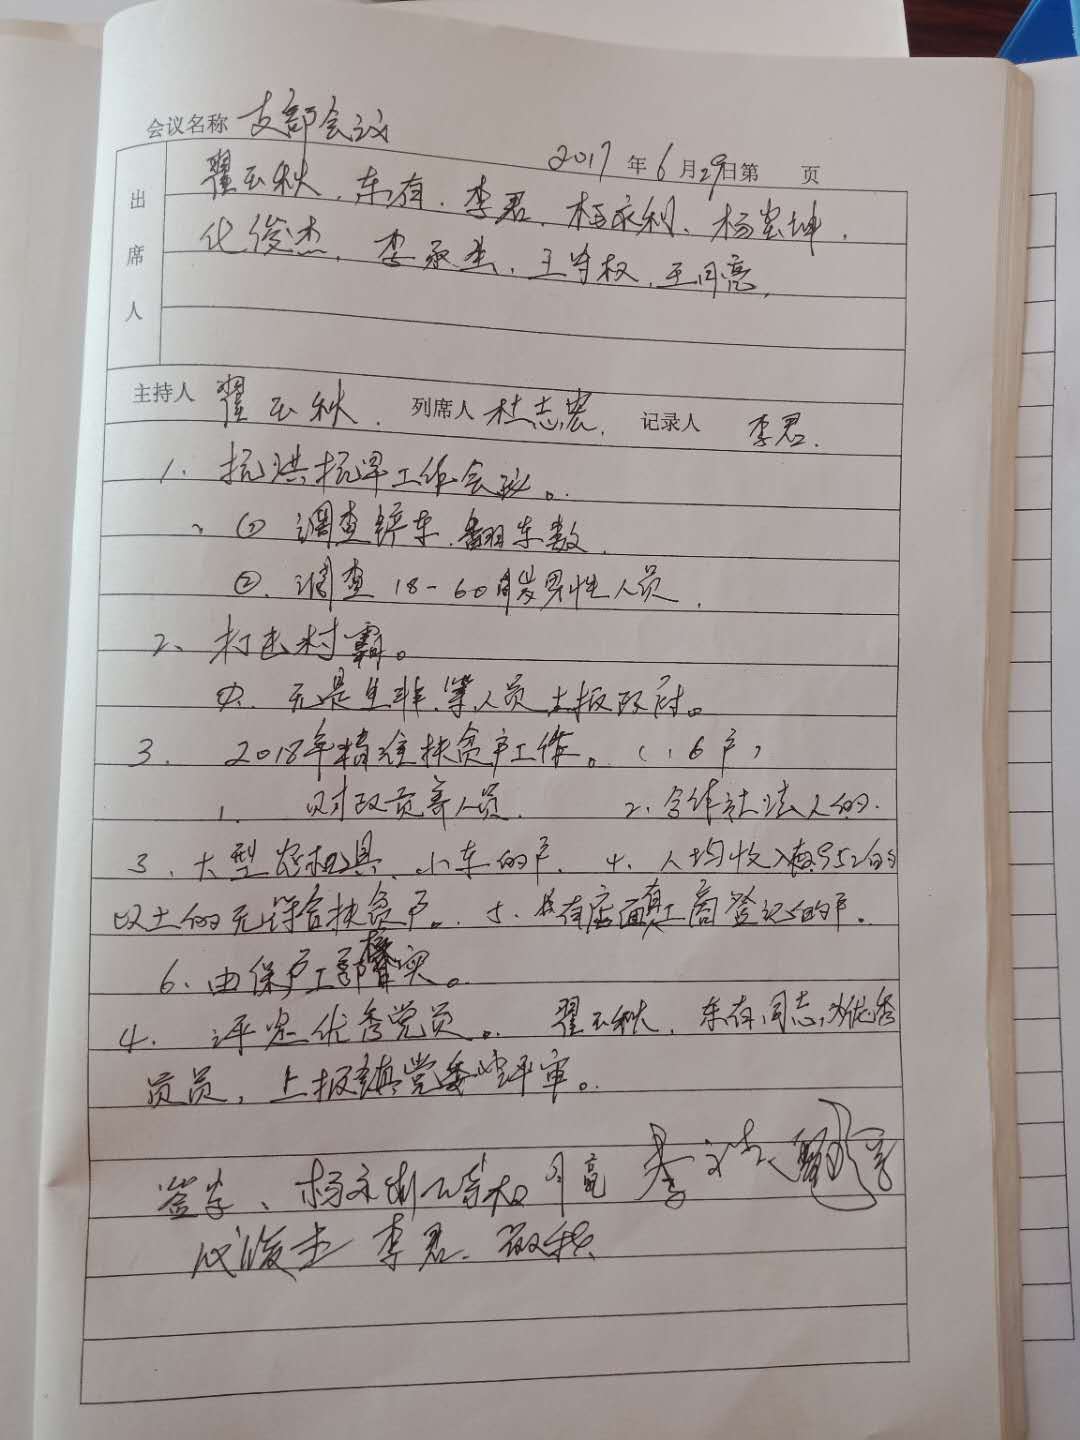 会议名称 支部会议
2017 年 6 月 29 日第 页
出席人 翟玉秋、东有、李君、杨永利、杨宏坤、
化俊杰、李承杰、王守权、王月亮、
主持人 翟玉秋. 列席人 杜志宏. 记录人 李君.
1. 抗洪抗旱工作会议。
① 调查轿车、翻车数.
②. 调查18-60周岁男性人员.
2、打击村霸。
无是生非、等人员上报政府。
3. 2018年精准扶贫户工作。(16户)
1. 财政贡养人员. 2. 合作社法人的.
3. 大型农机具、小车的户. 4. 人均收入 952的
以上的无符合扶贫户。 5. 有店面 工商登记的户。
6. 由保户工 核实。
4. 评定优秀党员。 翟玉秋、东有同志,为优秀
员, 上报镇党委 评审。
签字、杨永利 王守权 月亮 李
俊杰 李君.